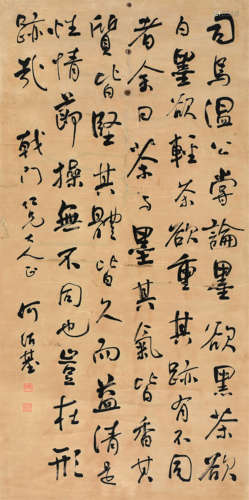 司馬溫公嘗論墨欲黑茶欲
白墨欲輕茶欲重其跡有不同
者余曰茶与墨其氣皆香其
質皆堅其體皆久而益清是
性情節操無不同也豈在形
跡哉
戟門仁兄大人正
何紹基